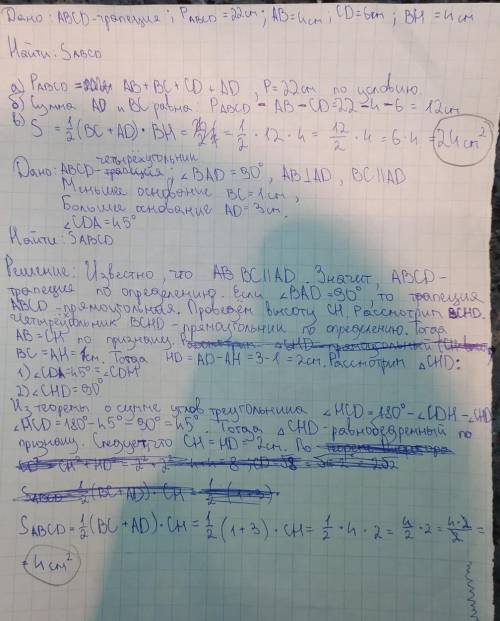 Дано: ABCD-трапеция; P_ABCD = 22см; AB=4см; CD=6см; BH = 4см
Найти: S_ABCD
а) P_ABCD = AB + BC + CD + AD, P=22см по условию.
б) Сумма AD и BC равна: P_ABCD - AB - CD = 22 - 4 - 6 = 12см
в) S = 1/2 (BC + AD) · BH = 1/2 · 12 · 4 = 12/2 · 4 = 6 · 4 = 24см²
четырёхугольник
Дано: ABCD-трапеция; ∠BAD = 90°, AB⊥AD, BC||AD
Меньшее основание BC = 1см,
Большее основание AD = 3см.
∠CDA = 45°
Найти: S_ABCD
Решение: Известно, что AB BC||AD. Значит, ABCD-
трапеция по определению. Если ∠BAD = 90°, то трапеция
ABCD - прямоугольная. Проведём высоту CH. Рассмотрим BCHD.
Четырёхугольник BCHD - прямоугольник по определению. Тогда
AB = CH по признаку. Рассмотрим △CHD-прямоугольный
BC = AH = 1см. Тогда HD = AD - AH = 3 - 1 = 2см. Рассмотрим △CHD:
1) ∠CDA = 45° = ∠CDH
2) ∠CHD = 90°
Из теоремы о сумме углов треугольника ∠HCD = 180° - ∠CDH - ∠CHD
∠HCD = 180° - 45° - 90° = 45°. Тогда △CHD - равнобедренный по
признаку. Следует, что CH = HD = 2см. По
CH² + HD² = 2² + 2² = 4 + 4 = 8
S_ABCD = 1/2 (BC + AD) · CH = 1/2 (1 + 3)
S_ABCD = 1/2 (BC + AD) · CH = 1/2 (1 + 3) · CH = 1/2 · 4 · 2 = 4/2 · 2 = 4·2/2 =
= 4см²